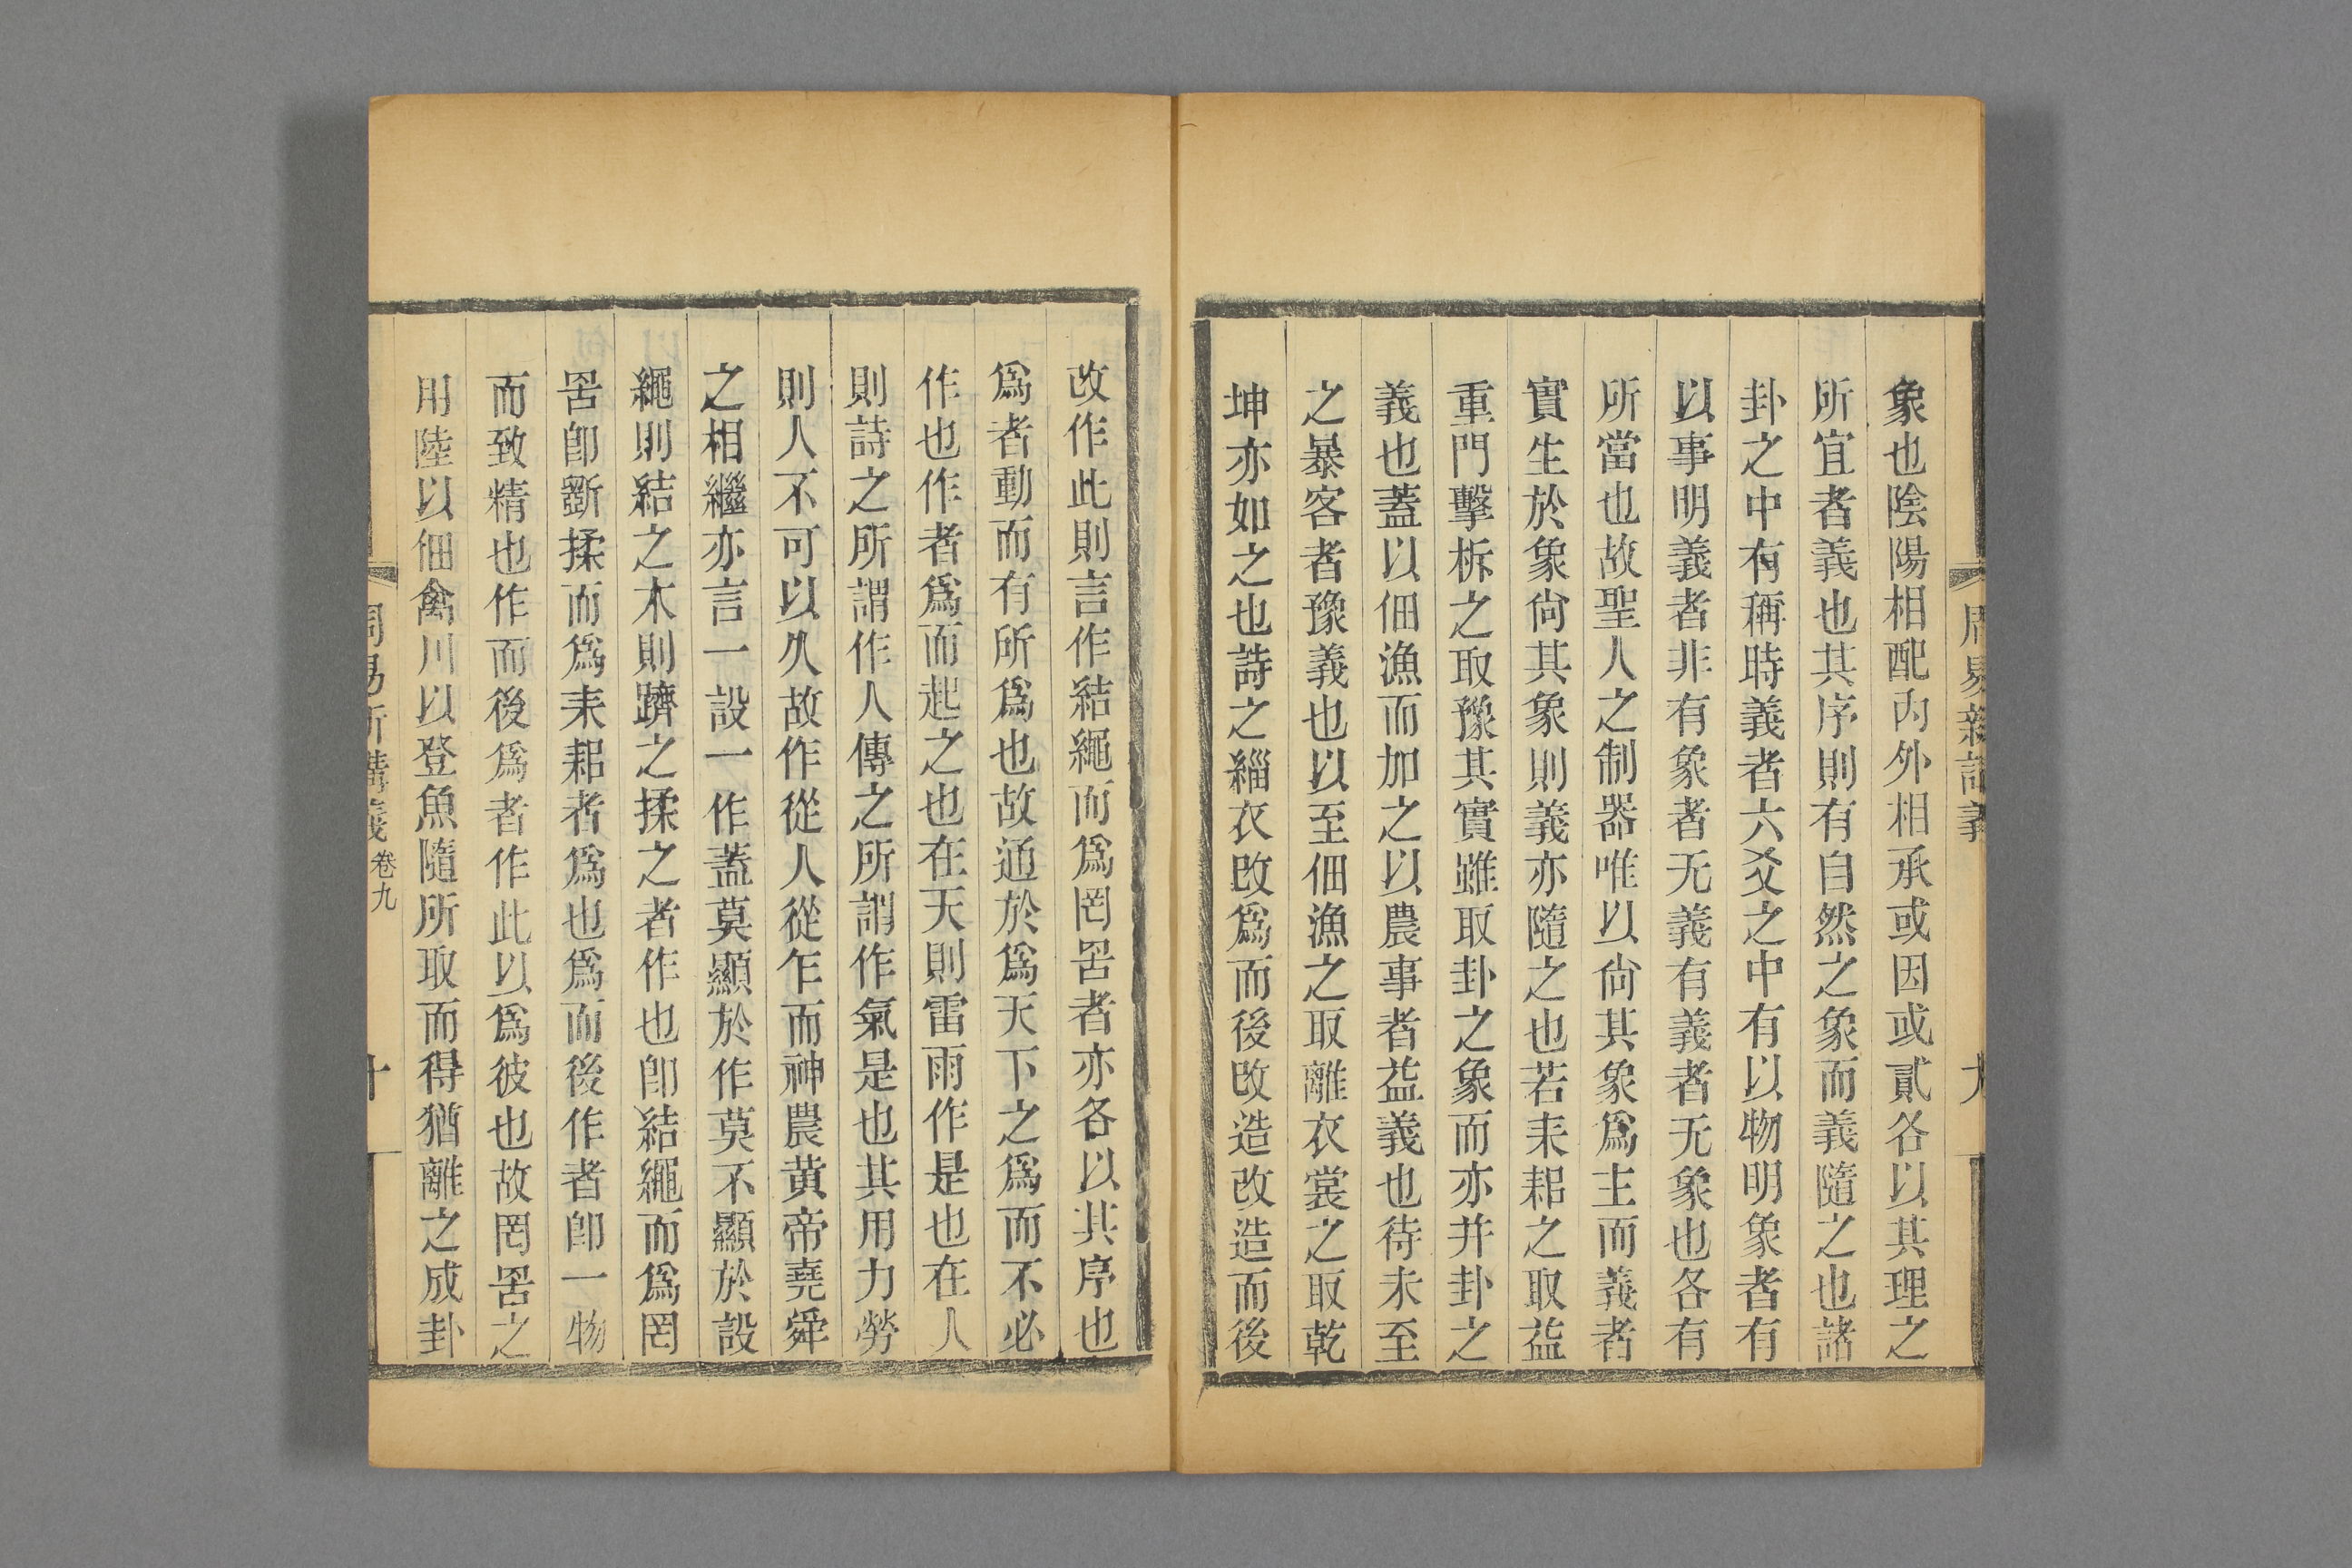 象也陰陽相配內外相承或因或貳各以其理之
所宜者義也其序則有自然之象而義隨之也諸
卦之中有稱時義者六爻之中有以物明象者有
以事明義者非有象者无義有義者无象也各有
所當也故聖人之制器唯以尙其象爲主而義者
實生於象尙其象則義亦隨之也若耒耜之取益
重門擊柝之取豫其實雖取卦之象而亦并卦之
義也蓋以佃漁而加之以農事者益義也待未至
之暴客者豫義也以至佃漁之取離衣裳之取乾
坤亦如之也詩之緇衣改爲而後改造改造而後
改作此則言作結繩而爲罔罟者亦各以其序也
爲者動而有所爲也故通於爲天下之爲而不必
作也作者爲而起之也在天則雷雨作是也在人
則詩之所謂作人傳之所謂作氣是也其用力勞
則人不可以久故作從人從乍而神農黄帝堯舜
之相繼亦言一設一作蓋莫顯於作莫不顯於設
繩則結之木則躋之揉之者作也卽結繩而爲罔
罟卽斲揉而爲耒耜者爲也爲而後作者卽一物
而致精也作而後爲者作此以爲彼也故罔罟之
用陸以佃禽川以登魚隨所取而得猶離之成卦
周易新講義
九
周易新講義 卷九
十